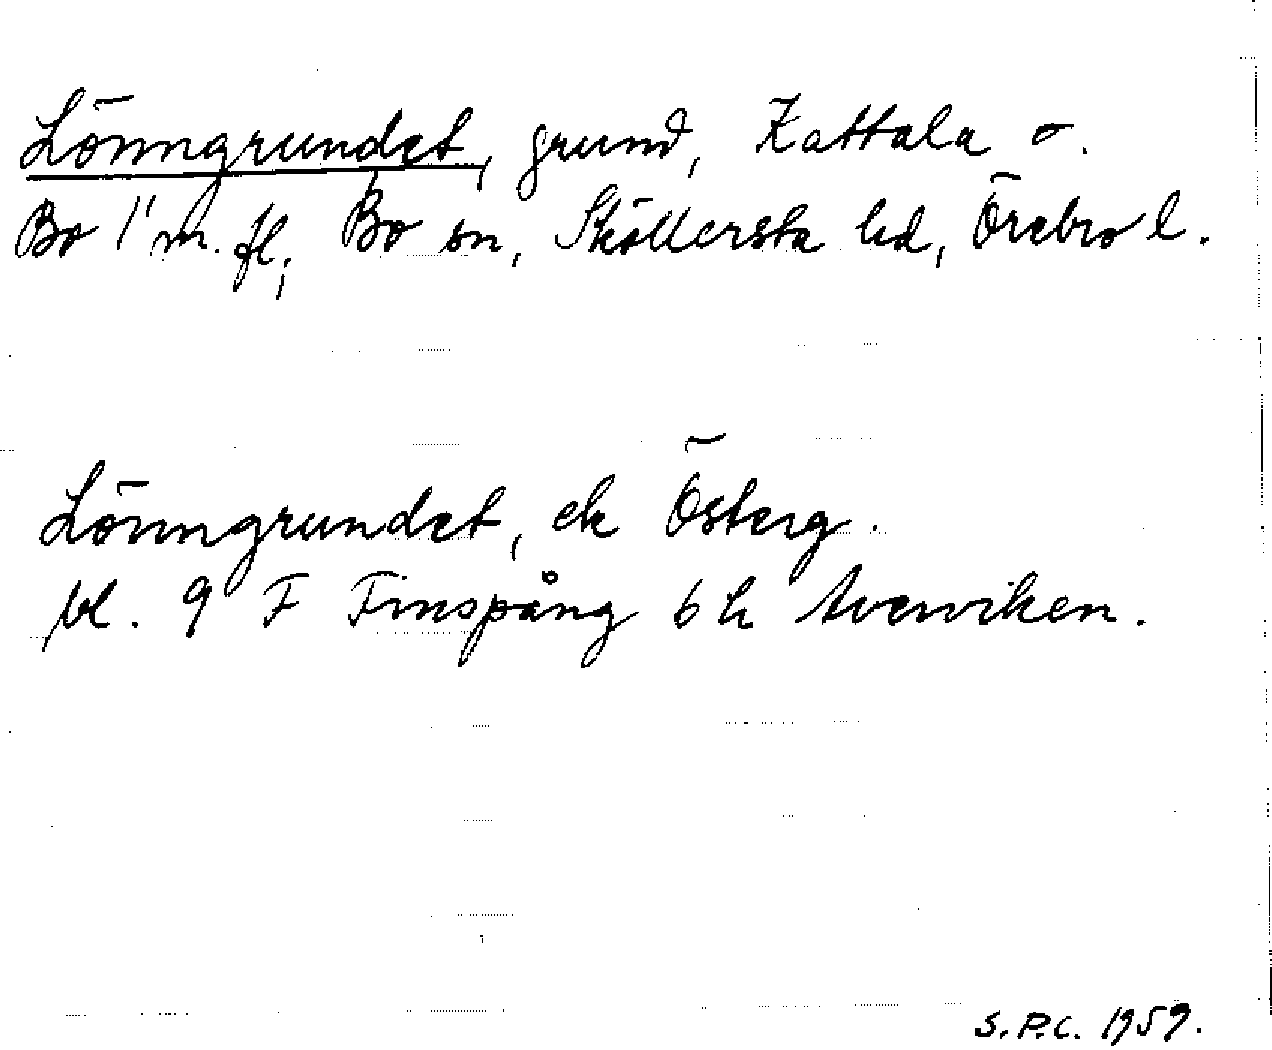 Lönngrundet, grund, Kattala o.
Bo 1¹ m. fl., Bo sn, Sköllersta hd, Örebro l.
Lönngrundet, ek Österg.
bl. 9 F Finspång 6 h Averviken.
S.P.C. 1959.